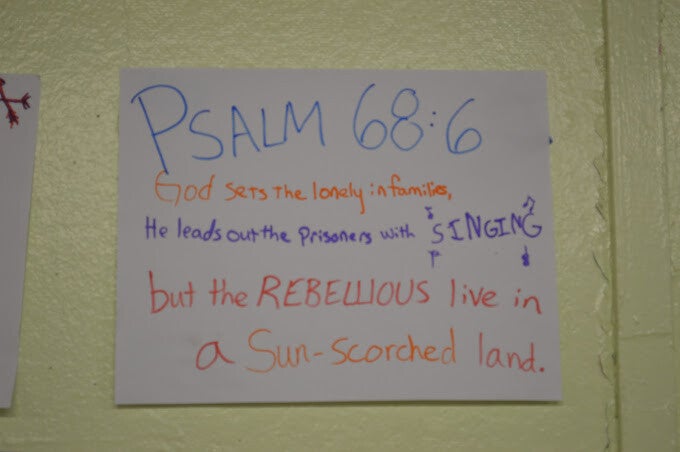 PSALM 68:6
God sets the lonely in families,
He leads out the prisoners with SINGING
but the REBELLIOUS live in
a Sun-scorched land.